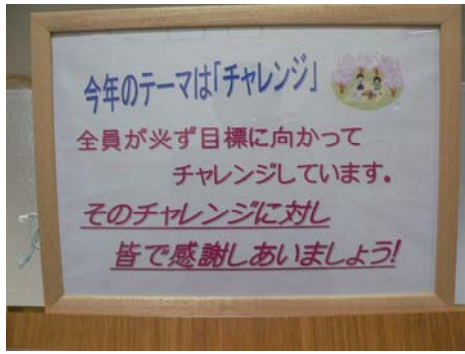 今年のテーマは「チャレンジ」
全員が必ず目標に向かって
チャレンジしています。
そのチャレンジに対し
皆で感謝しあいましょう!